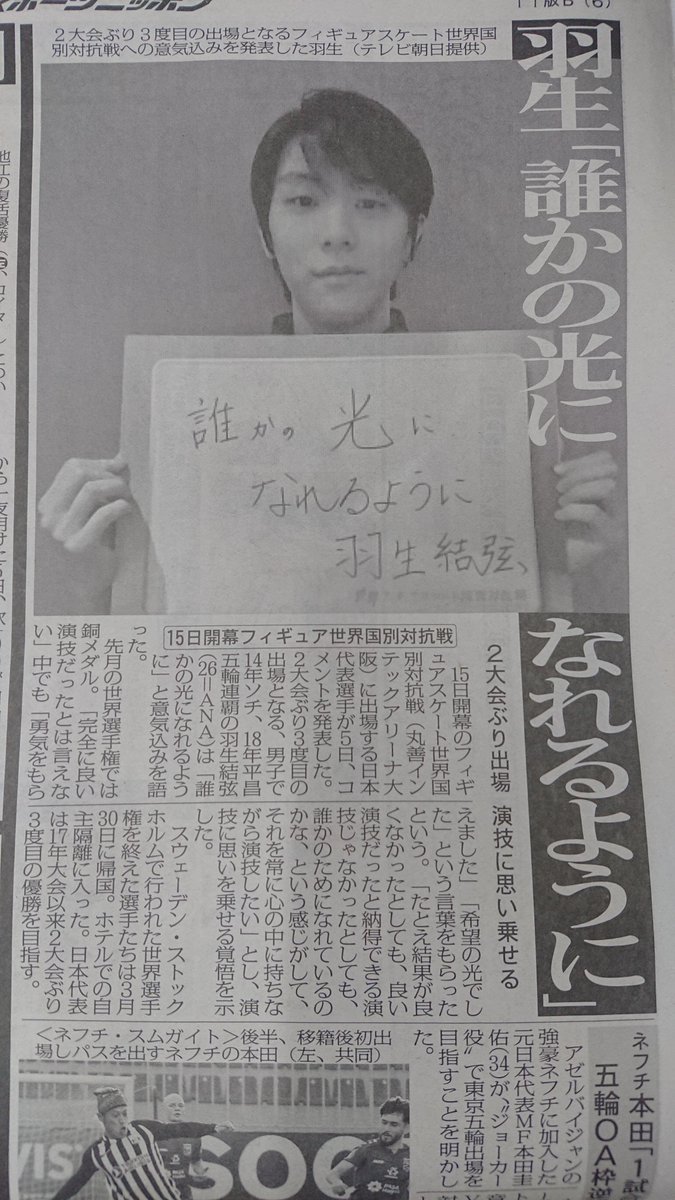 スポーツニッポン
11版B (6)
2大会ぶり3度目の出場となるフィギュアスケート世界国
別対抗戦への意気込みを発表した羽生(テレビ朝日提供)
羽生「誰かの光に
なれるように」
誰かの光に
なれるように
羽生結弦
15日開幕フィギュア世界国別対抗戦
2大会ぶり出場 演技に思い乗せる
15日開幕のフィギ
ュアスケート世界国
別対抗戦(丸善イン
テックアリーナ大
阪)に出場する日本
代表選手が5日、コ
メントを発表した。
2大会ぶり3度目の
出場となる、男子で
14年ソチ、18年平昌
五輪連覇の羽生結弦
(26=ANA)は「誰
かの光になれるよう
に」と意気込みを語
った。
先月の世界選手権では
銅メダル。「完全に良い
演技だったとは言えな
い」中でも「勇気をもら
えました」「希望の光でし
た」という言葉をもらった
という。「たとえ結果が良
くなかったとしても、良い
演技だったと納得できる演
技じゃなかったとしても、
誰かのためになれているの
かな、という感じがして、
それを常に心の中に持ちな
がら演技したい」とし、演
技に思いを乗せる覚悟を示
した。
スウェーデン・ストック
ホルムで行われた世界選手
権を終えた選手たちは3月
30日に帰国。ホテルでの自
主隔離に入った。日本代表
は17年大会以来2大会ぶり
3度目の優勝を目指す。
<ネフチ・スムガイト>後半、移籍後初出
場しパスを出すネフチの本田(左、共同)
ネフチ本田「1試
五輪OA枠
アゼルバイジャンの
強豪ネフチに加入した
元日本代表MF本田圭
佑(34)が、“ジョーカー
役”で東京五輪出場を
目指すことを明かし
た。
VIST
SOC